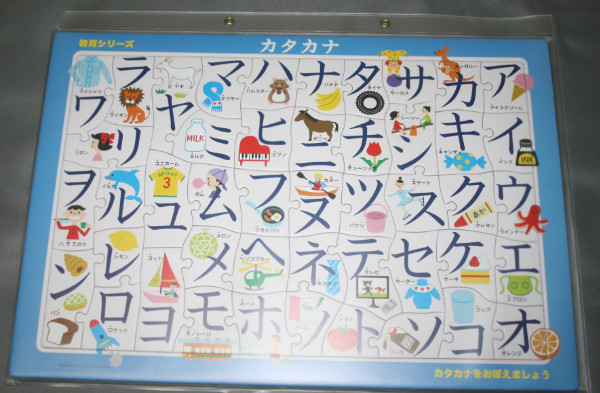 教育シリーズ
カタカナ
ア
アイスクリーム
イ
インク
INK
ウ
ウインナー
エ
エプロン
オ
オレンジ
カ
カンガルー
キ
キャンディ
ク
クレヨン
あか
ケ
ケーキ
コ
コップ
サ
サーカス
シ
シーソー
ス
スケート
セ
セーター
ソ
ソース
タ
タイヤ
チ
チューリップ
ツ
バケツ
テ
テレビ
ト
トマト
ナ
バナナ
ニ
ポニー
ヌ
カヌー
ネ
ネクタイ
ノ
ハ
ハムスター
ヒ
ピアノ
フ
フライパン
ヘ
ヘリコプター
ホ
マ
マフラー
ミ
ミルク
MILK
ム
ガム
メ
メロン
モ
モノレール
ヤ
ヤギ
ユ
ユニホーム
APOLLO
3
ヨ
ヨット
ラ
ライオン
リ
リボン
ル
イルカ
レ
レモン
ロ
ロケット
ワ
ワイシャツ
ヲ
ハヲミガク
ン
パン
カタカナをおぼえましょう